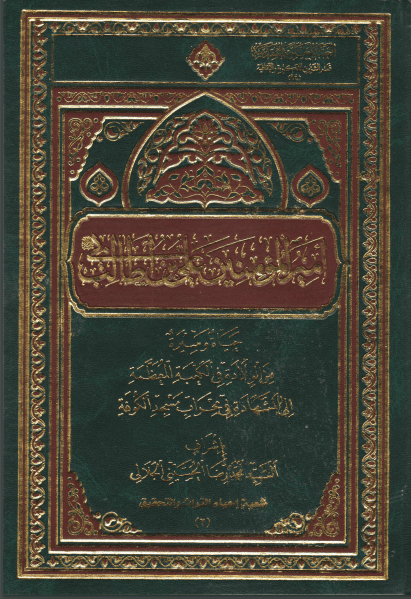 أمير المؤمنين علي بن أبي طالب
حياة وسيرة
من الولادة في الكعبة المعظمة
إلى الشهادة في محراب مسجد الكوفة
إشراف
السيد محمد رضا الحسيني الجلالي
لجمعية إحياء التراث والتحقيق
(٢)